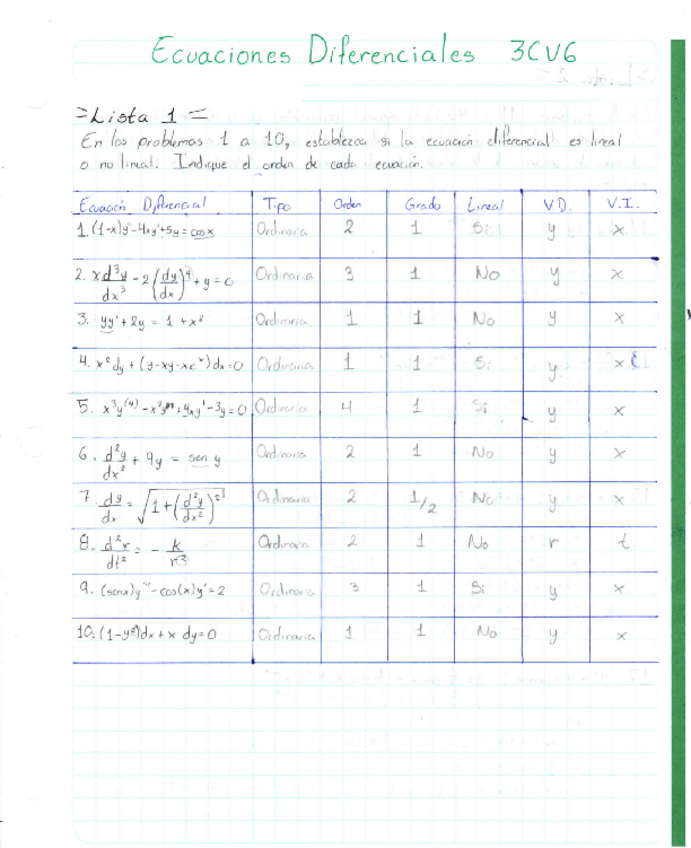 Ecuaciones Diferenciales 3CV6
=Lista 1=
En los problemas 1 a 10, establezca si la ecuación diferencial es lineal
o no lineal. Indique el orden de cada ecuación.
Ecuación Diferencial Tipo Orden Grado Lineal V.D. V.I.
1. (1-x)y''-4xy'+5y = cosx Ordinaria 2 1 Si y x
2. x d³y/dx³ - 2(dy/dx)⁴ + y = 0 Ordinaria 3 1 No y x
3. yy' + 2y = 1 + x² Ordinaria 1 1 No y x
4. x²dy + (y-xy-xeˣ)dx=0 Ordinaria 1 1 Si y x
5. x³y⁽⁴⁾ - x²y'' + 4xy' - 3y = 0 Ordinaria 4 1 Si y x
6. d²y/dx² + 9y = sen y Ordinaria 2 1 No y x
7. dy/dx = √1+(d²y/dx²)² Ordinaria 2 1/2 No y x
8. d²r/dt² = - k/r² Ordinaria 2 1 No r t
9. (senx)y''' - cos(x)y' = 2 Ordinaria 3 1 Si y x
10. (1-y²)dx + x dy=0 Ordinaria 1 1 No y x